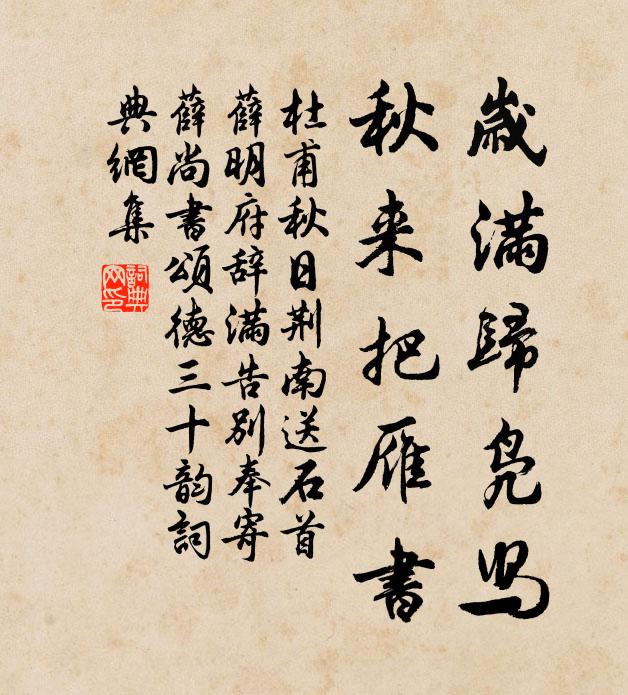 歲滿歸鳧舄
秋来把雁書
杜甫秋日荆南送石首
薛明府辞滿告别奉寄
薛尚書頌德三十韵詞
典網集
詞典网印